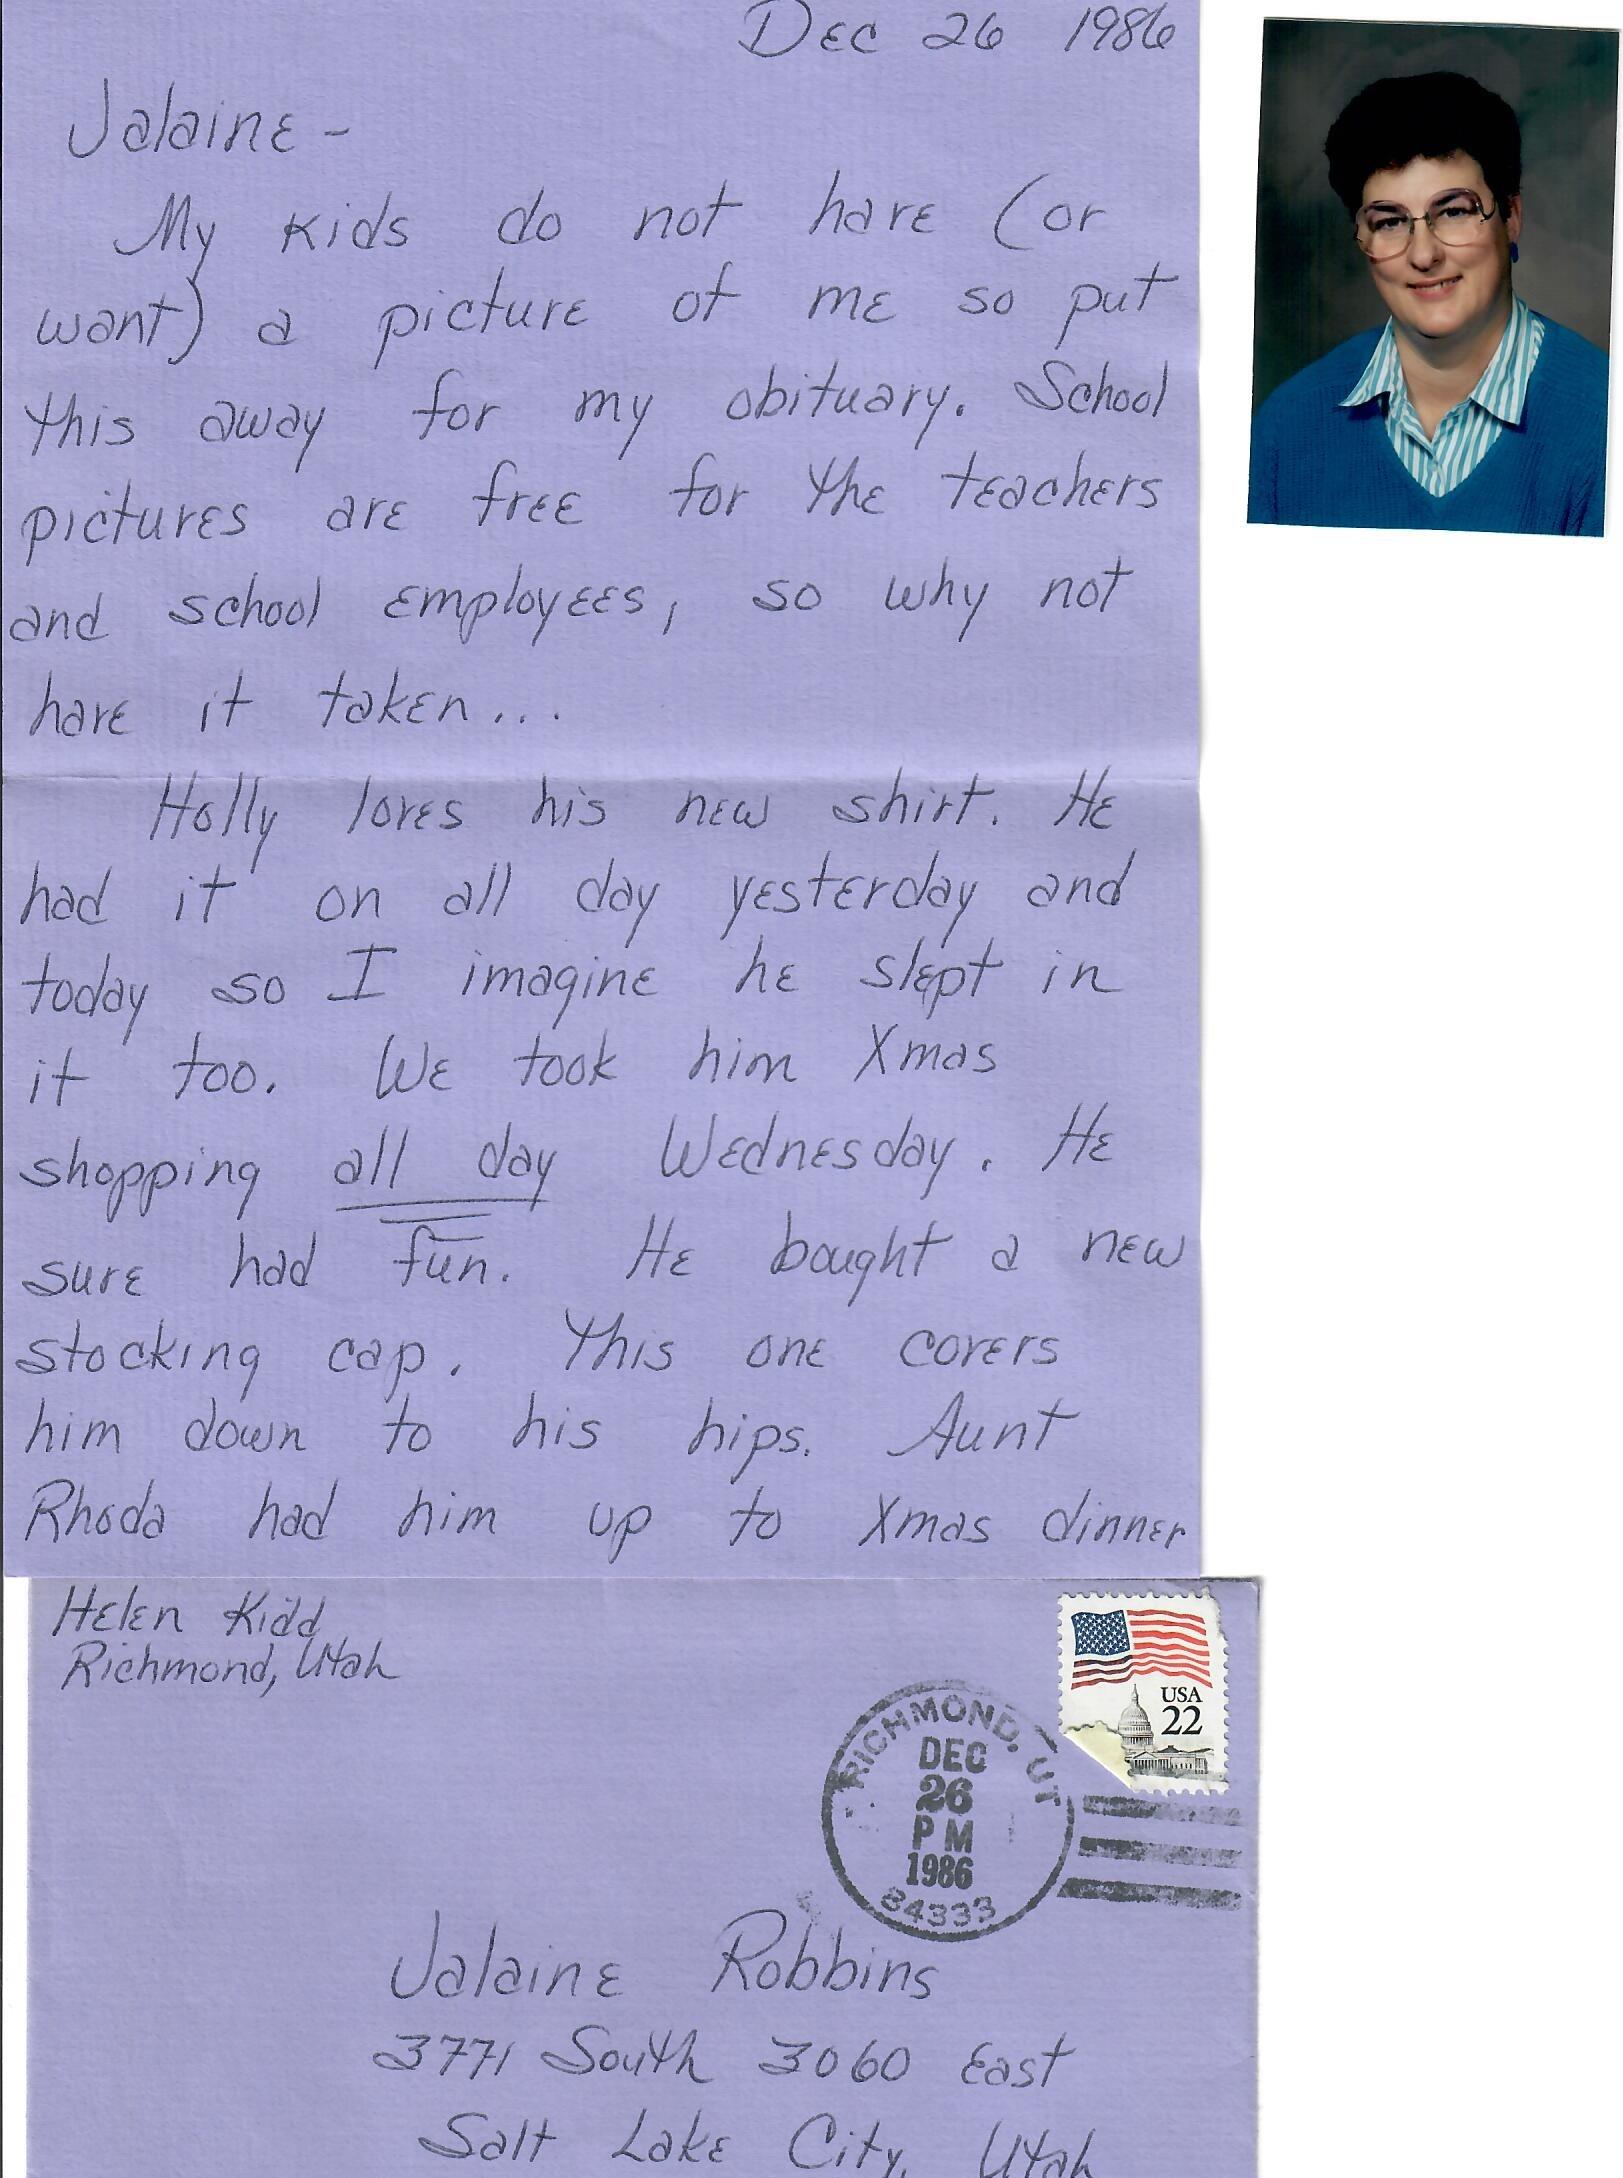 Dec 26 1986
Jalaine -
My kids do not have (or
want) a picture of me so put
this away for my obituary. School
pictures are free for the teachers
and school employees, so why not
have it taken...
Holly loves his new shirt. He
had it on all day yesterday and
today so I imagine he slept in
it too. We took him Xmas
shopping all day Wednesday. He
sure had fun. He bought a new
stocking cap. This one covers
him down to his hips. Aunt
Rhoda had him up to Xmas dinner
Helen Kidd
Richmond, Utah
USA
22
RICHMOND, UT
DEC
26
PM
1986
84333
Jalaine Robbins
3771 South 3060 East
Salt Lake City, Utah